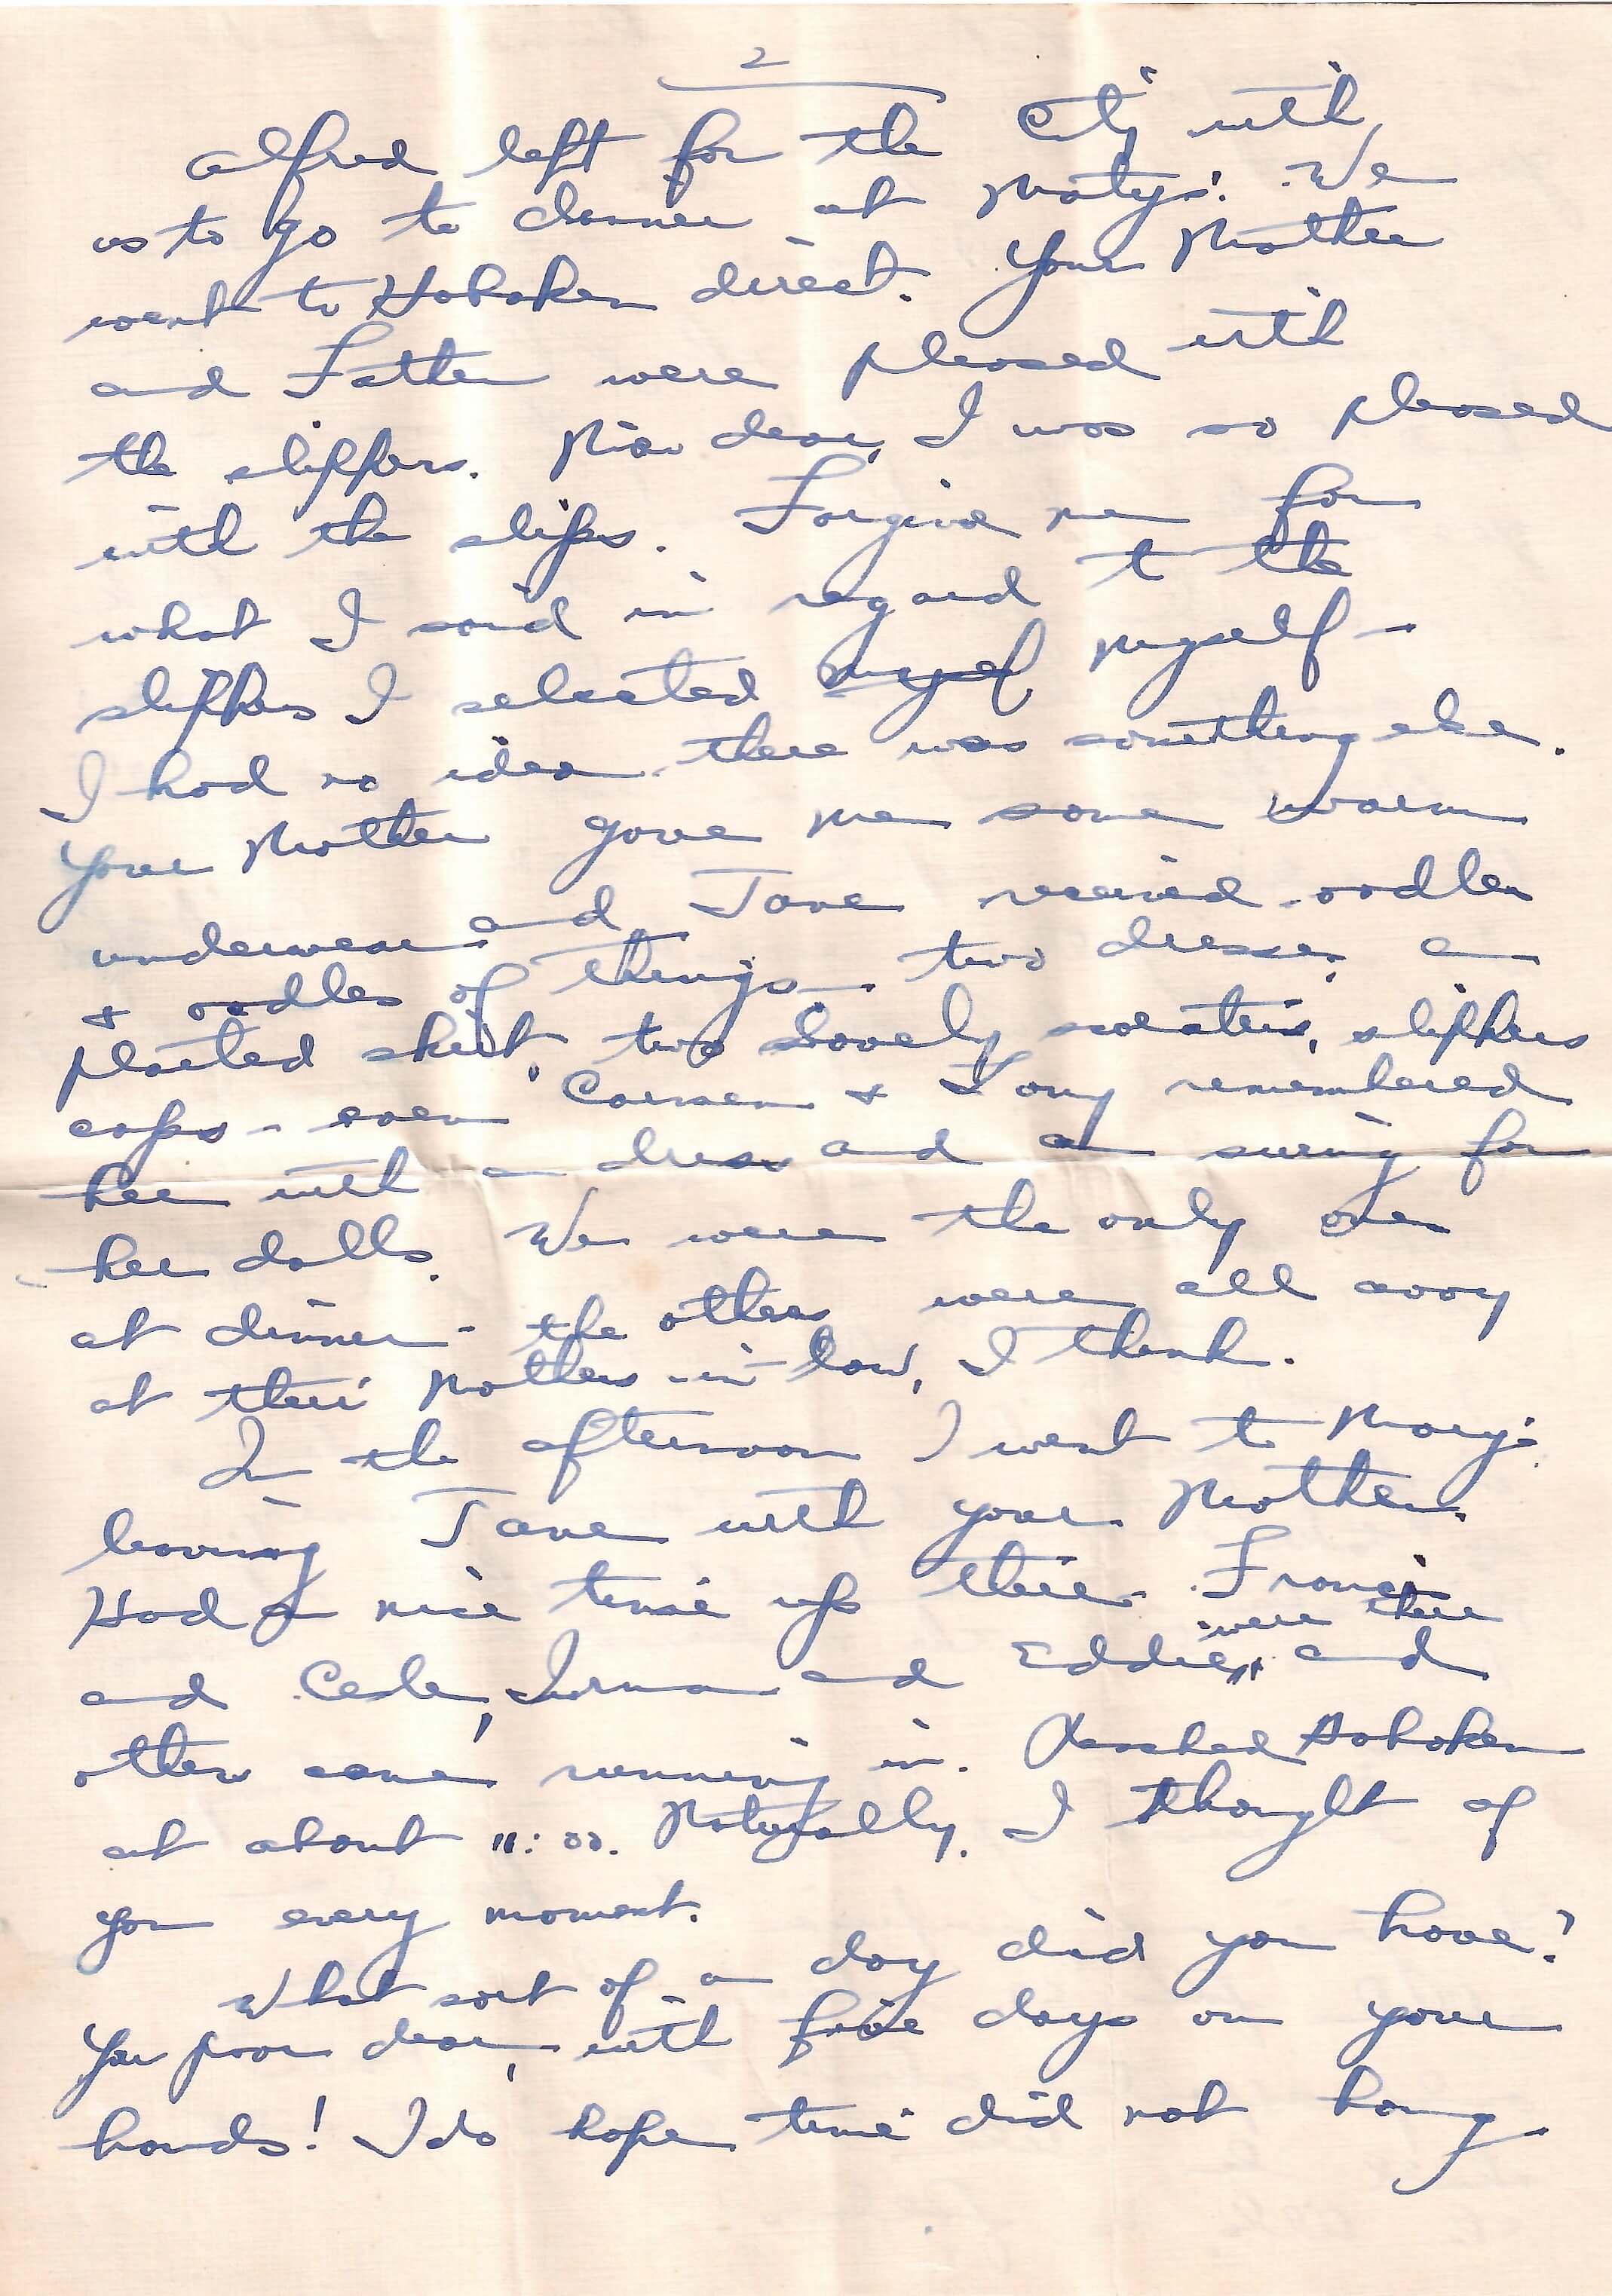 2
Alfred left for the City with
us to go to dinner at Matys'. We
went to Hoboken direct. Your Mother
and Father were pleased with
the slippers. Now dear, I was so pleased
with the slips. Forgive me for
what I said in regard to the
slippers I selected myself myself -
I had no idea there was something else.
Your Mother gave me some warm
underwear and Jane received oodles
& oodles of things - two dresses, a
plaited skirt, two lovely sweaters, slippers
caps - even Carmen & Tony remembered
her with a dress and a swing for
her dolls. We were the only ones
at dinner - the others were all away
at their Mothers-in-law, I think.
In the afternoon I went to Mary's
leaving Jane with your Mother.
Had a nice time up there. Francis
were there
and Cele, Irma and Eddie, and
others came running in. Reached Hoboken
at about 11:00. Naturally, I thought of
you every moment.
What sort of a day did you have?
You poor dear, with five days on your
hands! I do hope time did not hang